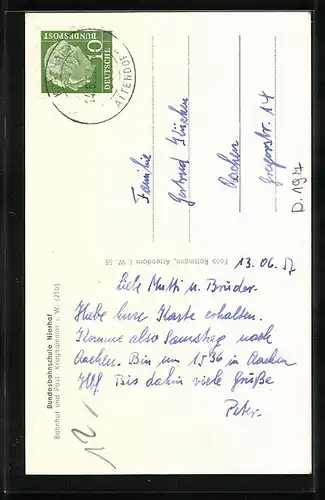 10
DEUTSCHE
BUNDESPOST
ALTENDORF
Familie
Gertrud
Aachen
Gregorstr. 14
D.1917
Foto Rottmann, Attendorn i. W. 55
Bundesbahnschule Nierhof
Bahnhof und Post: Krughammer i. W. (21b)
13.06.57
Liebe Mutti u. Bruder.
Habe eure Karte erhalten.
Komme also Samstag nach
Aachen. Bin um 15³⁶ in Aachen
Hbf. Bis dahin viele Grüße
Peter.
12